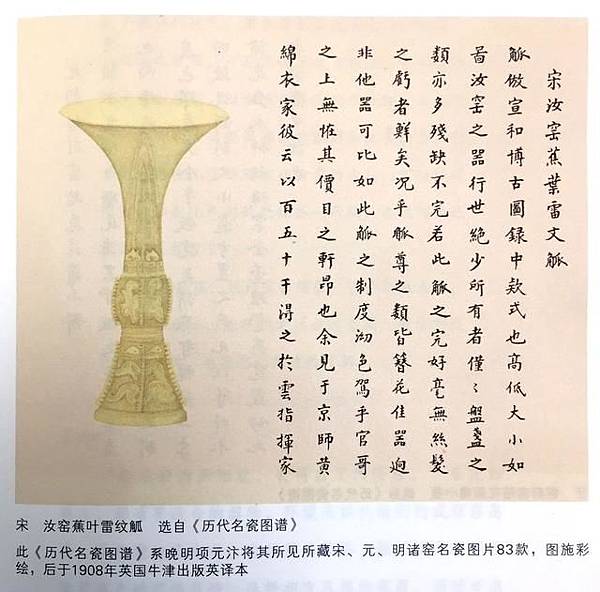 宋汝窑蕉葉雷文觚
觚倣宣和博古圖録中欵式也高低大小如
啚汝窑之器行世絶少所有者僅〻盤盞之
類亦多殘缺不完若此觚之完好毫無絲髮
之虧者鮮矣况乎觚尊之類皆簪花佳器逈
非他器可比如此觚之制度沕色駕乎官哥
之上無恠其價目之軒昂也余見于京師黄
綿衣家彼云以百五十千淂之於雲指揮家
宋 汝窑蕉叶雷纹觚 选自《历代名瓷图谱》
此《历代名瓷图谱》系晚明项元汴将其所见所藏宋、元、明诸窑名瓷图片83款，图施彩
绘，后于1908年英国牛津出版英译本